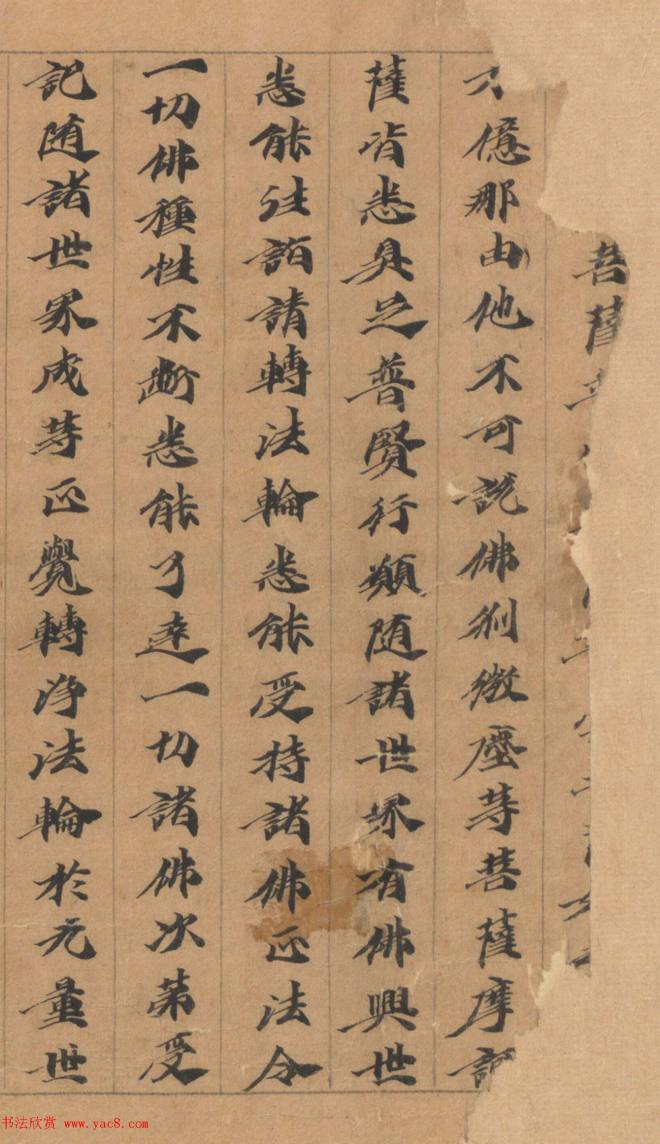 菩薩
億那由他不可說佛刹微塵等菩薩摩訶
薩皆悉具足普賢行願随諸世界有佛興世
悉能往詣請轉法輪悉能受持諸佛正法令
一切佛種性不断悉能了達一切諸佛次第受
記随諸世界成等正覺轉淨法輪於无量世
书法欣赏 www.yac8.com